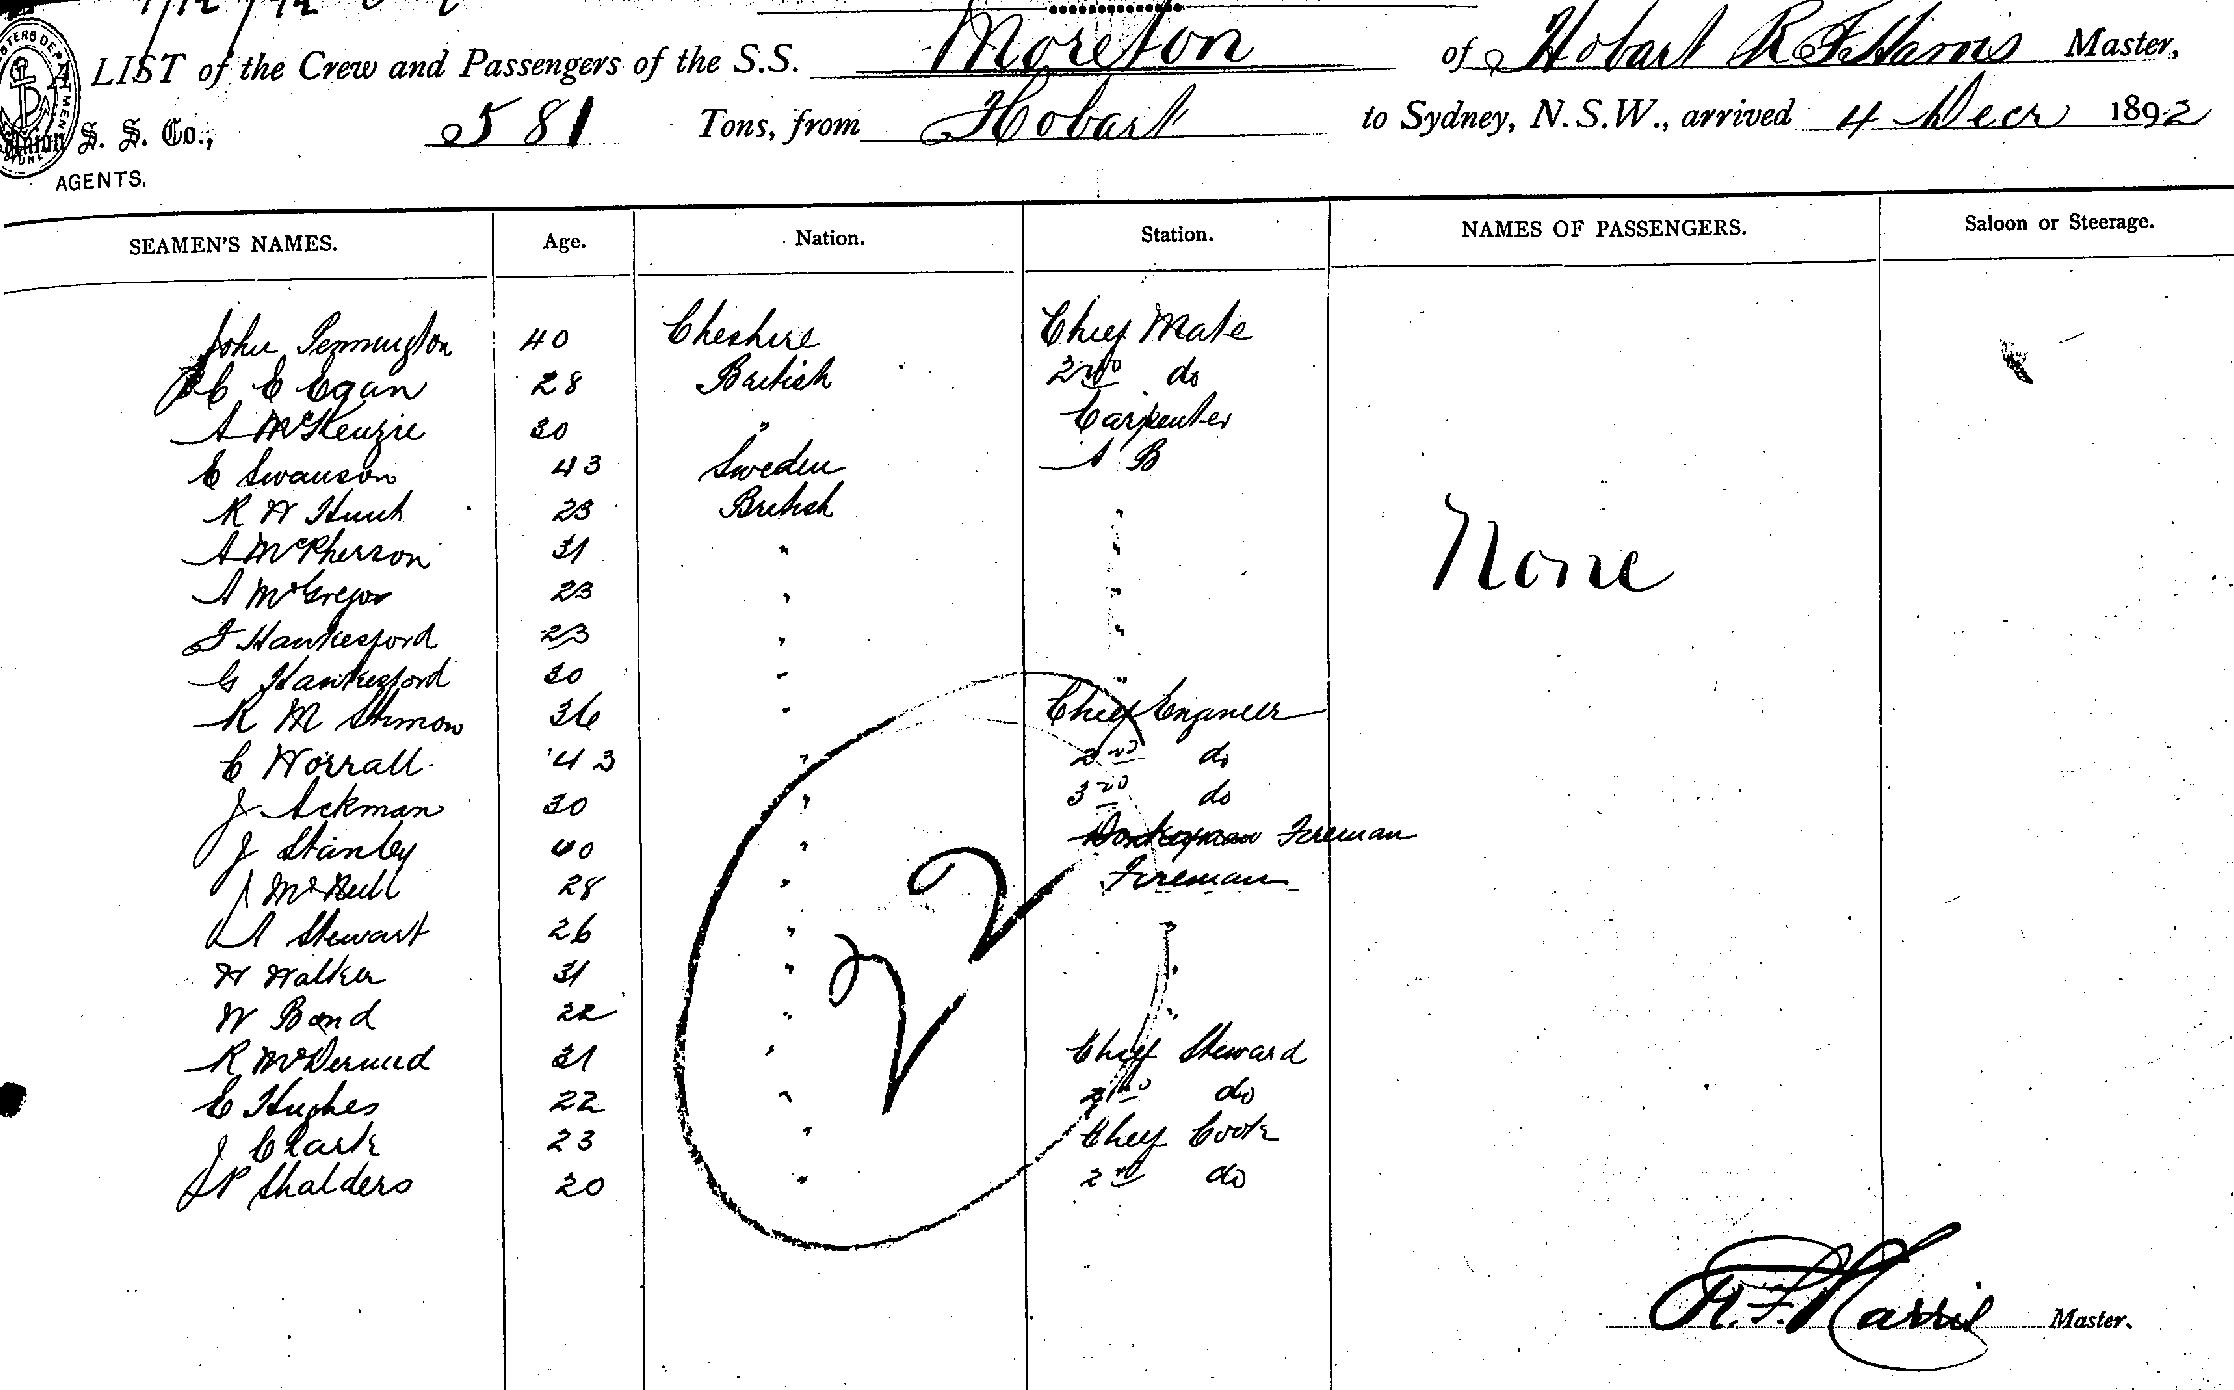 LIST of the Crew and Passengers of the S.S. Moreton of Hobart R F Harris Master,
Union S. S. Co., 581 Tons, from Hobart to Sydney, N.S.W., arrived 4 Decr 1892
AGENTS.
SEAMEN'S NAMES. Age. Nation. Station. NAMES OF PASSENGERS. Saloon or Steerage.
John Pennington 40 Cheshire Chief Mate
C E Egan 28 British 2nd do
A McKenzie 30 " Carpenter
C Swanson 43 Sweden A B
R W Hunt 23 British "
A McPherson 31 " "
None
A McGregor 23 " "
F Hankesford 23 " "
G Hankesford 30 " "
R M 36 " Chief Engineer
C Worrall 43 " 2nd do
J Ackman 30 " 3rd do
J Stanley 40 " Donkeyman Fireman
J 28 " Fireman
22
A Stewart 26 " "
W Walker 31 " "
W Bond 22 " "
R McDermid 31 " Chief Steward
E Hughes 22 " 2nd do
J Clark 23 " Chief Cook
J P Shalders 20 " 2nd do
R. F. Harris Master.